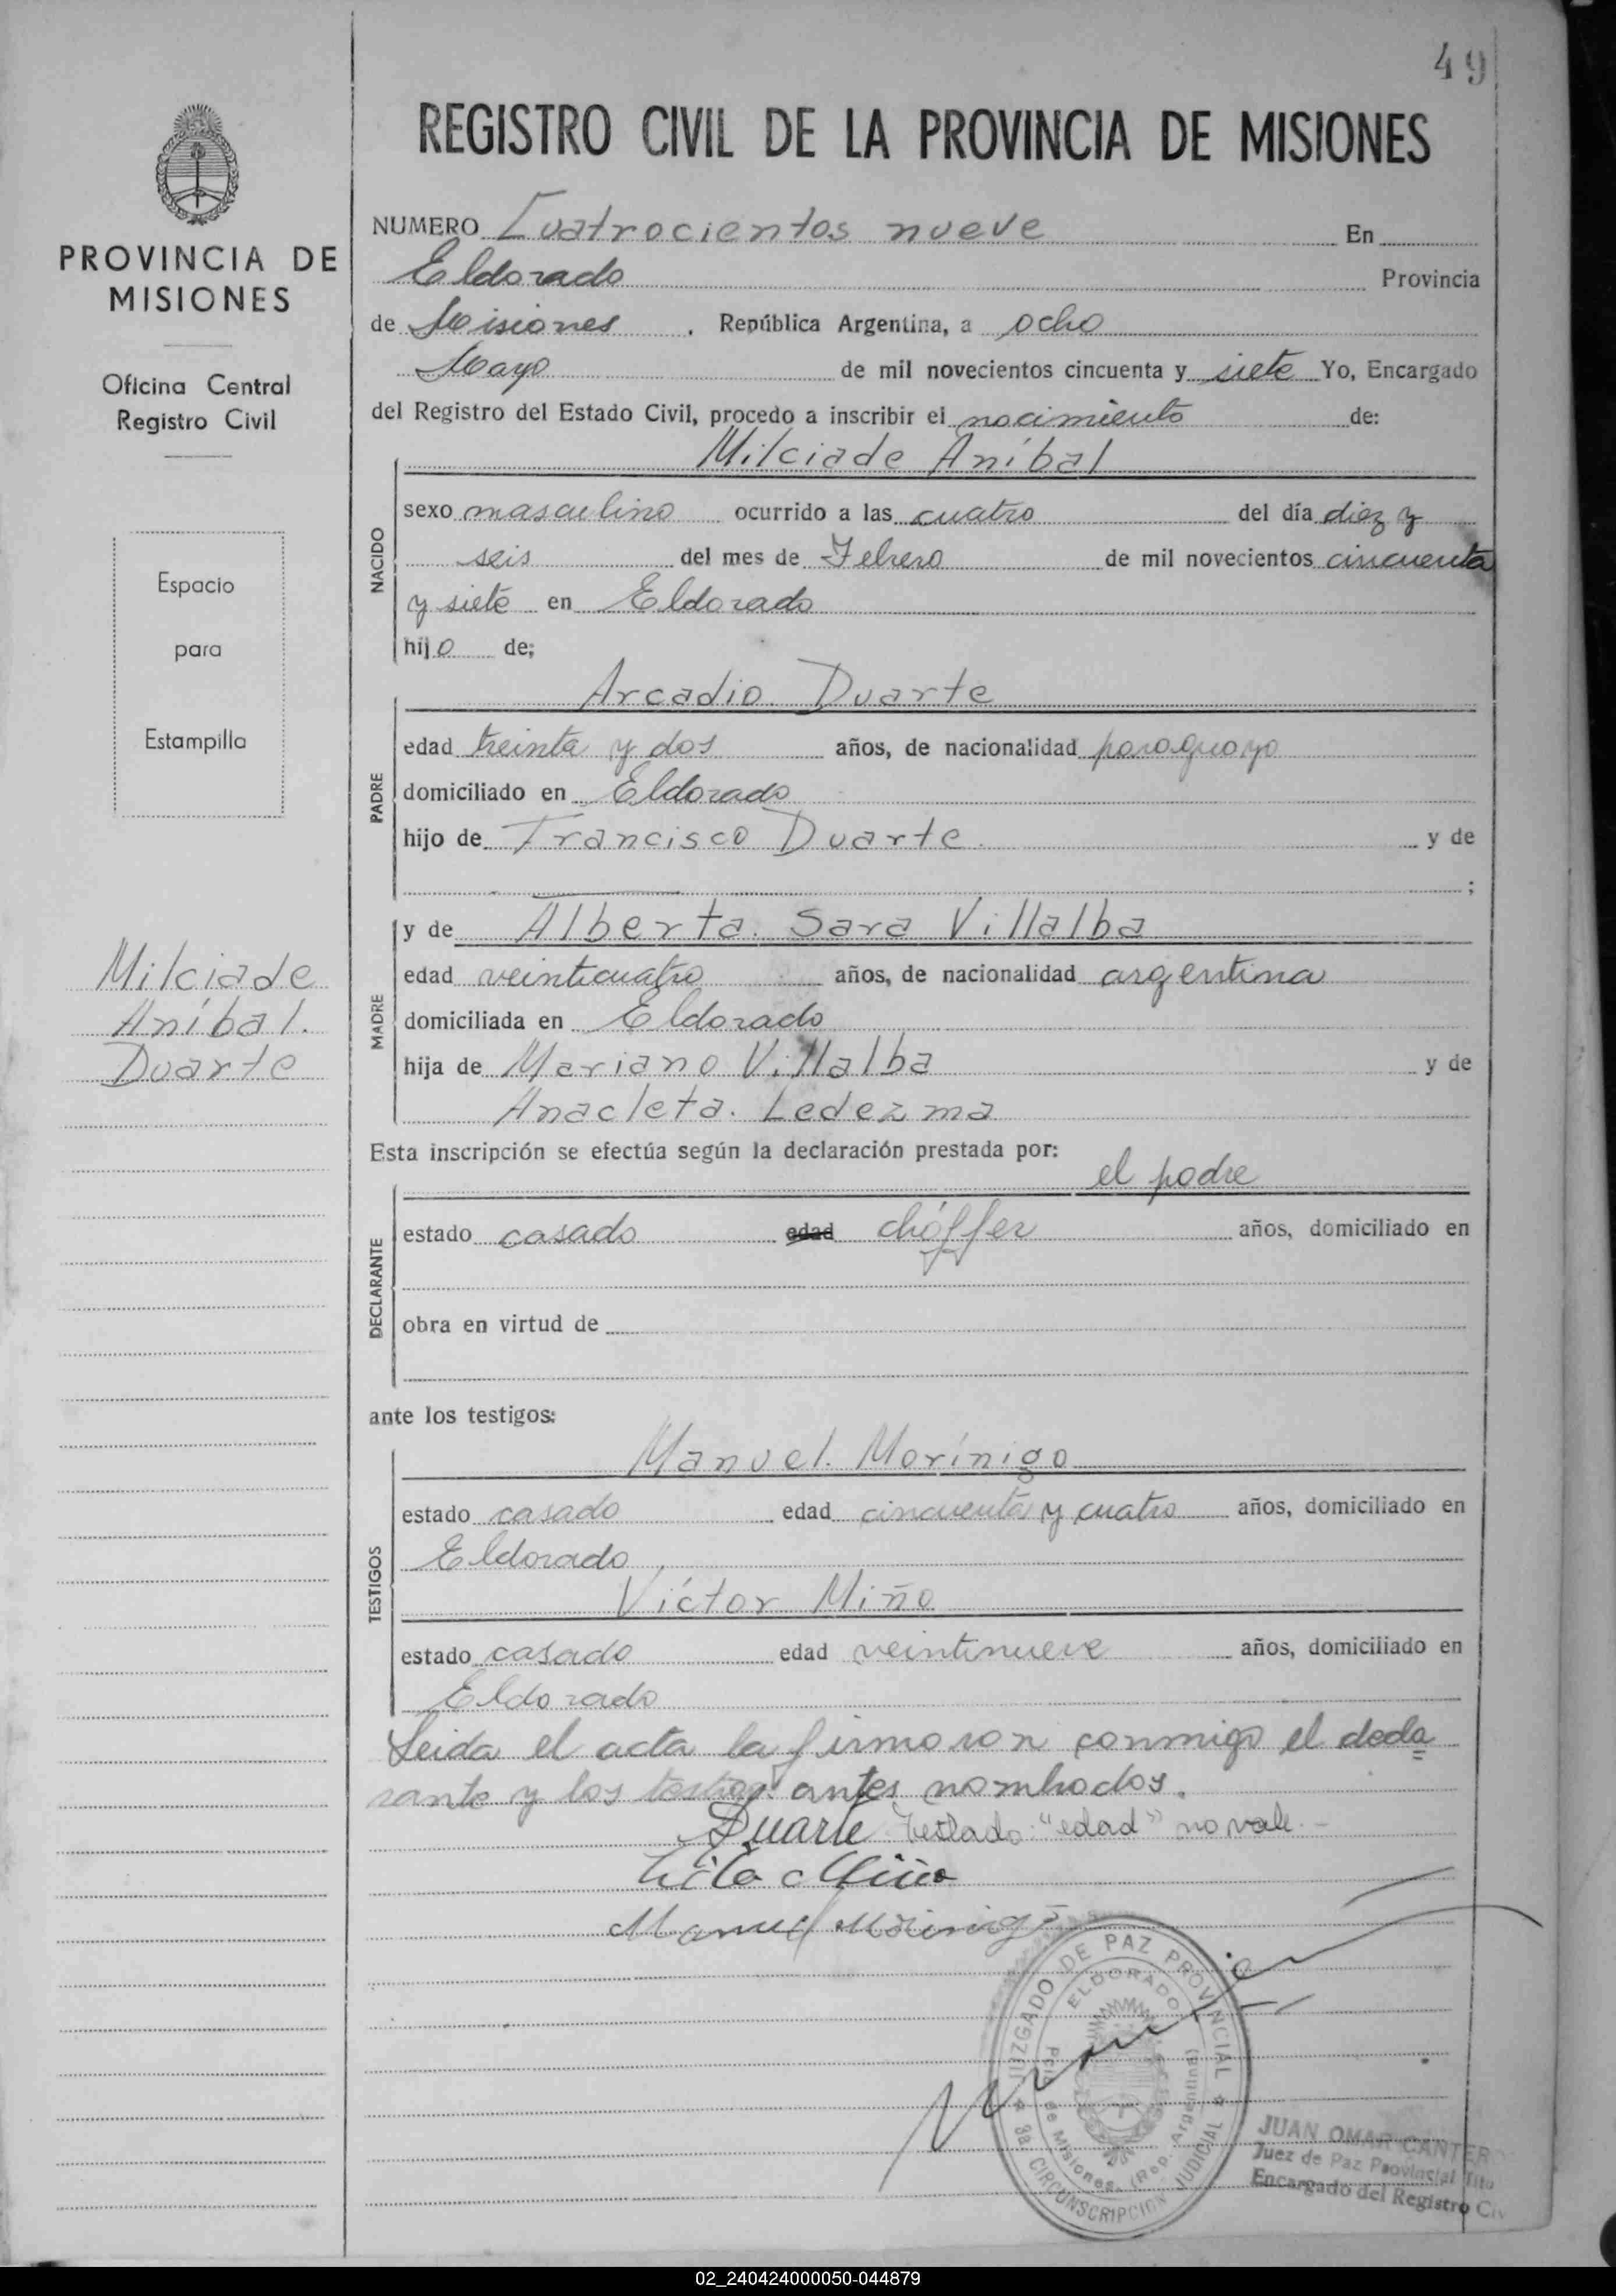 49
REGISTRO CIVIL DE LA PROVINCIA DE MISIONES
PROVINCIA DE
MISIONES
Oficina Central
Registro Civil
Espacio
para
Estampilla
Milciade
Aníbal.
Duarte
NUMERO Cuatrocientos nueve En
Eldorado Provincia
de Misiones, República Argentina, a ocho
Mayo de mil novecientos cincuenta y siete Yo, Encargado
del Registro del Estado Civil, procedo a inscribir el nacimiento de:
Milciade Aníbal
NACIDO
sexo masculino ocurrido a las cuatro del día diez y
seis del mes de Febrero de mil novecientos cincuenta
y siete en Eldorado
hijo de;
Arcadio Duarte
PADRE
edad treinta y dos años, de nacionalidad paraguayo
domiciliado en Eldorado
hijo de Francisco Duarte. y de
;
MADRE
y de Alberta. Sara Villalba
edad veinticuatro años, de nacionalidad argentina
domiciliada en Eldorado
hija de Mariano Villalba y de
Anacleta. Ledezma
Esta inscripción se efectúa según la declaración prestada por:
el padre
DECLARANTE
estado casado edad chóffer años, domiciliado en
obra en virtud de
ante los testigos:
Manuel. Morínigo
TESTIGOS
estado casado edad cincuenta y cuatro años, domiciliado en
Eldorado
Víctor Miño
estado casado edad veintinueve años, domiciliado en
Eldorado
Leida el acta la firmaron conmigo el decla=
rante y los testigos antes nombrados.
Duarte Testado: "edad" no vale.-
Miño
Manuel Morinigo
JUZGADO DE PAZ PROVINCIAL
ELDORADO
Pcia. de Misiones. (Rep. Argentina)
3a. CIRCUNSCRIPCION JUDICIAL
JUAN OMAR CANTERO
Juez de Paz Provincial Titu
Encargado del Registro Civ
02_240424000050-044879